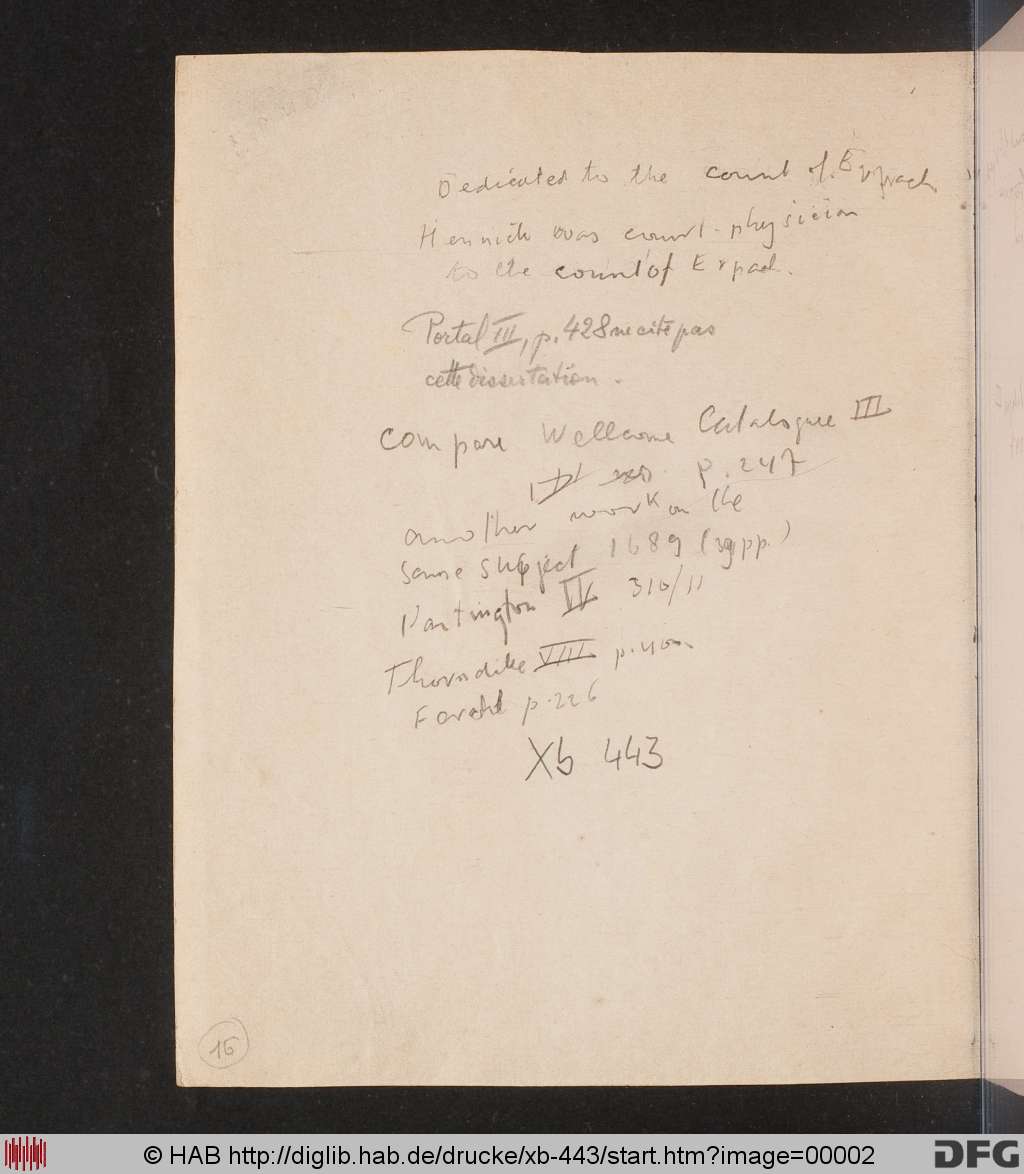 Dedicated to the count of Erpach
Hennick was count-physician
to the count of Erpach.
Portal III, p. 428 ne cite pas
cette dissertation.
Compare Wellcome Catalogue III
p. 247
another work on the
same subject 1689 (39 pp.)
Partington 310/11
Thorndike VIII p. 40
p. 226
Xb 443
16
© HAB http://diglib.hab.de/drucke/xb-443/start.htm?image=00002
DFG